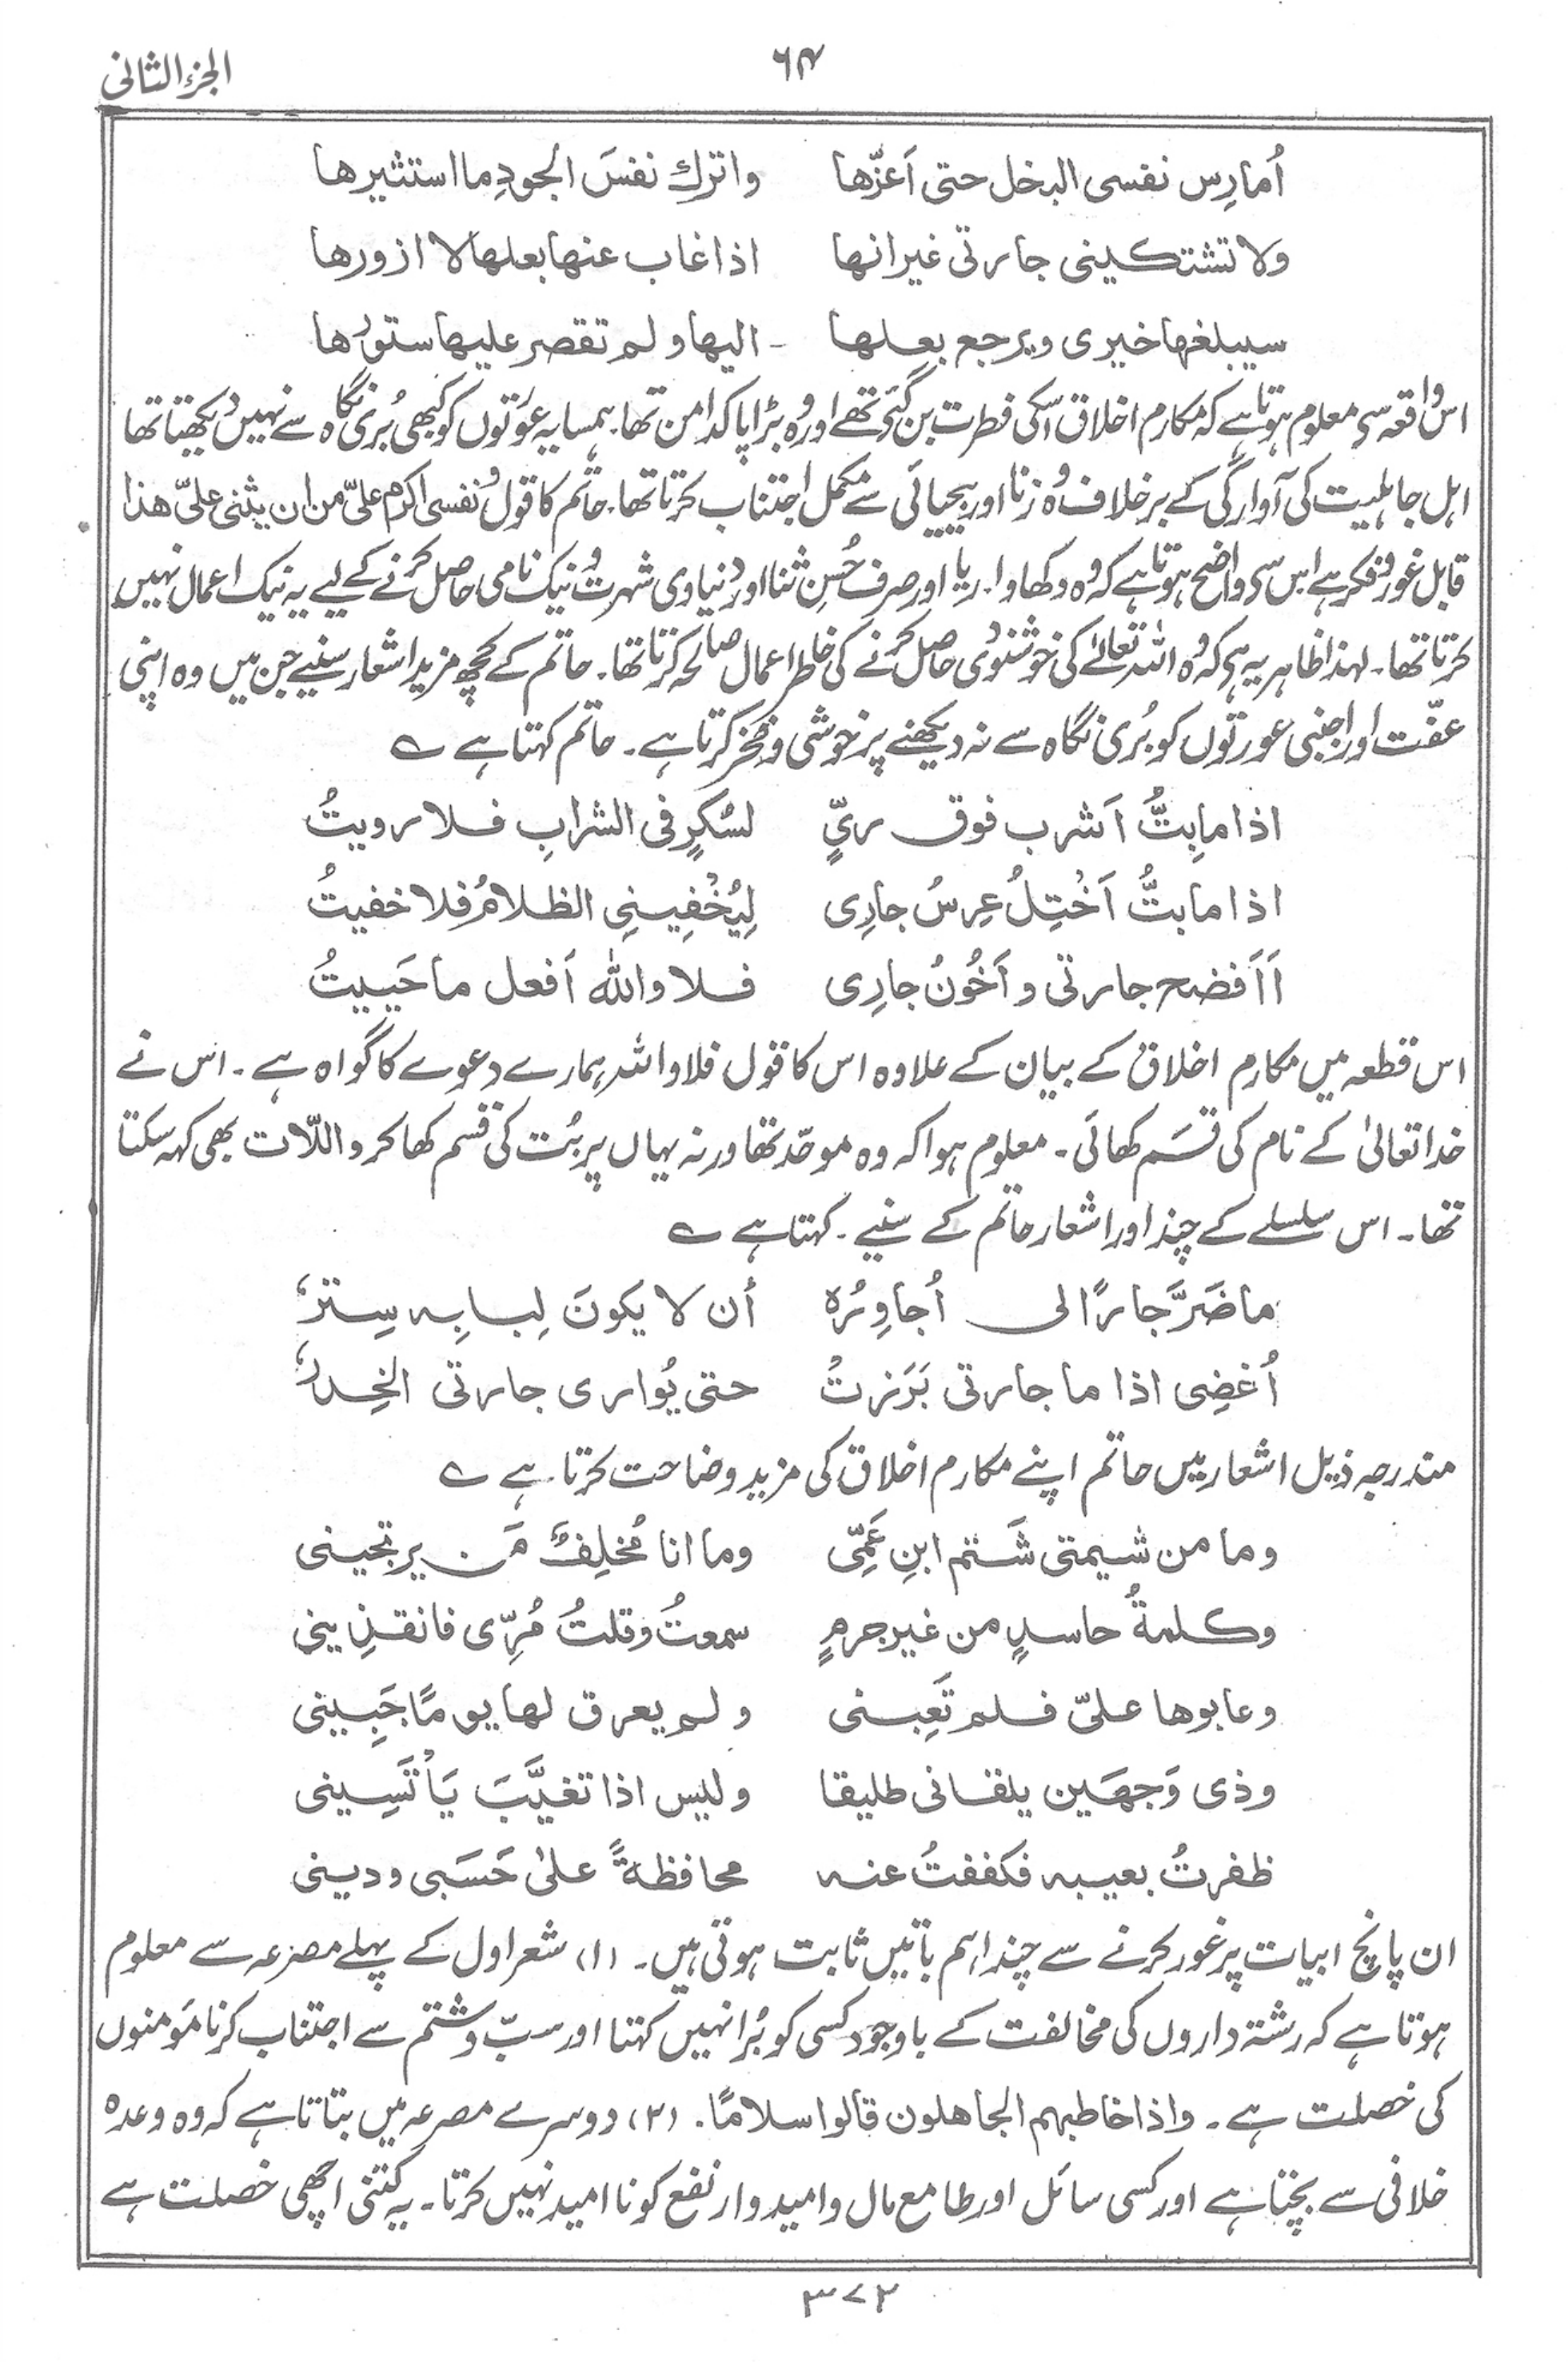 الجزء الثانی
۶۴
اُمارِس نفسی البخل حتی اَعزّها واترك نفسَ الجودِ ما استثیرها
ولا تشتکینی جارتی غیر انها اذا غاب عنها بعلها لا ازورها
سیبلغها خیری ویرجع بعلها - الیها ولم تقصر علیها ستورُها
اس واقعہ سی معلوم ہوتا ہے کہ مکارم اخلاق اسکی فطرت بن گئی تھے اور وُہ بڑا پاکدامن تھا۔ ہمسایہ عورتوں کو کبھی بُری نگاہ سے نہیں دیکھتا تھا
اہل جاہلیت کی آوارگی کے برخلاف وُہ زنا اور بیحیائی سے مکمل اجتناب کرتا تھا۔ حاتم کا قول و نفسی اکرم علیّ من ان یثنی علیّ هذا
قابل غور و فکر ہے اس سی واضح ہوتا ہے کہ وُہ دکھاوا۔ ریا اور صرف حُسنِ ثنا اور دنیاوی شہرت و نیک نامی حاصل کرنے کے لیے یہ نیک اعمال نہیں
کرتا تھا۔ لہذا ظاہر یہ ہی کہ وُہ اللہ تعالےٰ کی خوشنودی حاصل کرنے کی خاطر اعمال صالحہ کرتا تھا۔ حاتم کے کچھ مزید اشعار سنیے جن میں وہ اپنی
عفّت اور اجنبی عورتوں کو بُری نگاہ سے نہ دیکھنے پر خوشی و فخر کرتا ہے۔ حاتم کہتا ہے ؎
اذا ما بِتُّ اَشرب فوق ریٍّ لسُکرٍ فی الشرابِ فلا رویتُ
اذا ما بتُّ اَخْتِلُ عِرسُ جارِی لِیُخْفِینِی الظلامُ فلا خفیتُ
اَاَفضح جارتی واَخُونُ جارِی فلا واللّٰه اَفعل ما حَیِیتُ
اس قطعہ میں مکارِم اخلاق کے بیان کے علاوہ اس کا قول فلا واللہ ہمارے دعوے کا گواہ ہے۔ اس نے
خدا تعالیٰ کے نام کی قسَم کھائی۔ معلوم ہوا کہ وہ موحّد تھا ورنہ یہاں پر بُت کی قسم کھا کر واللّات بھی کہہ سکتا
تھا۔ اس سلسلے کے چند اور اشعار حاتم کے سنیے۔ کہتا ہے ؎
ما ضَرَّ جارًا لی اُجاوِرُہ أن لا یکونَ لِبابِه سِترٗ
اُغضِی اذا ما جارتی بَرَزتْ حتی یُواری جارتی الخِدرٗ
مندرجہ ذیل اشعار میں حاتم اپنے مکارم اخلاق کی مزید وضاحت کرتا ہے ؎
وما من شیمتی شَتم ابنِ عَمِّی وما انا مُخلِفٌ مَن یرتجینی
وکلمةُ حاسدٍ من غیر جرمٍ سمعتُ وقلتُ مُرِّی فانقذِینی
وعابوها علیّ فلم تَعِبنی ولم یعرق لها یومًا جَبِینی
وذی وَجهَین یلقانی طلیقا ولیس اذا تغیَّبَ یَأتَسِینی
ظفرتُ بعیبه فکففتُ عنه محافظةً علیٰ حَسَبی ودینی
ان پانچ ابیات پر غور کرنے سے چند اہم باتیں ثابت ہوتی ہیں۔ (۱) شعر اول کے پہلے مصرعہ سے معلوم
ہوتا ہے کہ رشتہ داروں کی مخالفت کے باوجود کسی کو بُرا نہیں کہتا اور سبّ و شتم سے اجتناب کرنا مؤمنوں
کی خصلت ہے۔ واذا خاطبهم الجاهلون قالوا سلامًا۔ (۲) دوسرے مصرعہ میں بتاتا ہے کہ وہ وعدہ
خلافی سے بچتا ہے اور کسی سائل اور طامع مال و امیدوار نفع کو ناامید نہیں کرتا۔ یہ کتنی اچھی خصلت ہے
۳۷۲